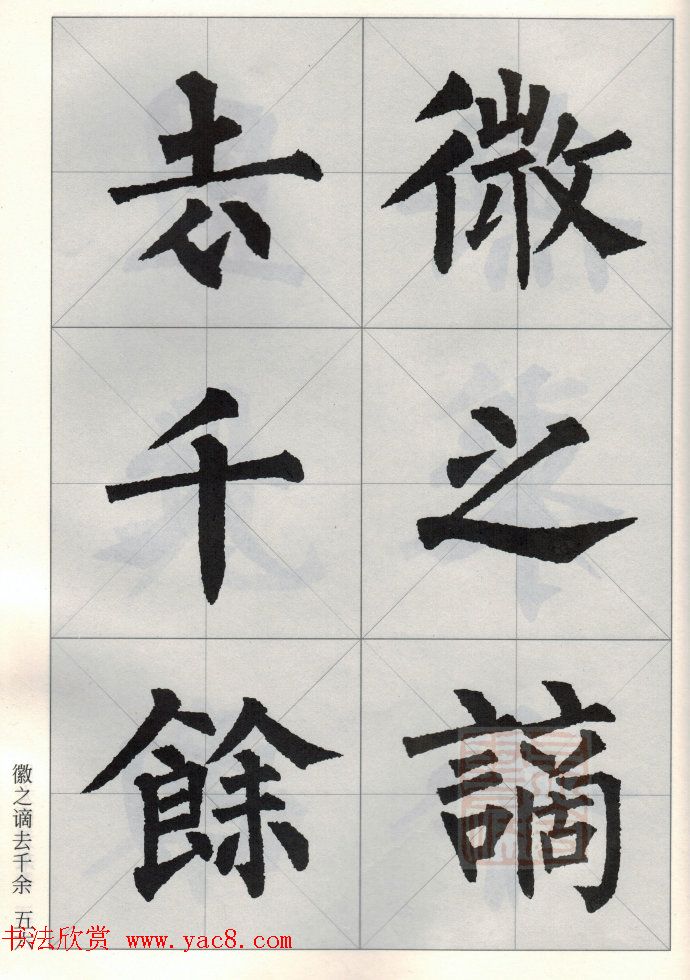 徽之謫
去千餘
徽之谪去千余 五
书法欣赏 www.yac8.com